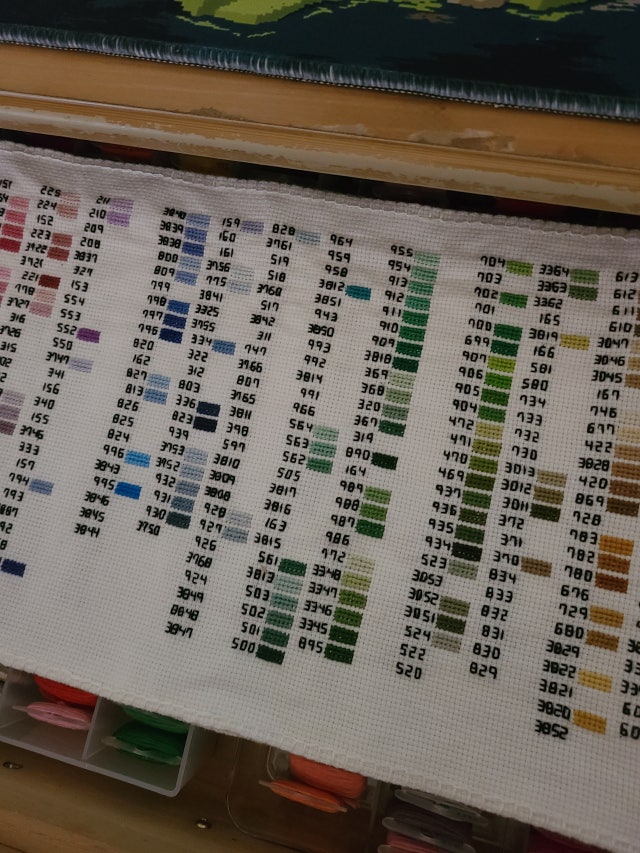 225
224
152
223
3722
3721
221
778
3727
316
3726
315
211
210
209
208
3837
327
153
554
553
552
550
3747
341
156
340
155
3746
333
157
794
793
3840
3839
3838
800
809
799
798
797
796
820
162
827
813
826
825
824
996
3843
995
3846
3845
3844
159
160
161
3756
775
3841
3325
3755
334
322
312
803
336
823
939
3753
3752
932
931
930
3750
828
3761
519
518
3760
517
3842
311
747
3766
807
3765
3811
598
597
3810
3809
3808
928
927
926
3768
924
3849
3848
3847
964
959
958
3812
3851
943
3850
993
992
3814
991
966
564
563
562
505
3817
3816
163
3815
561
3813
503
502
501
500
955
954
913
912
911
910
909
3818
369
368
320
367
319
890
164
989
988
987
986
772
3348
3347
3346
3345
895
704
703
702
701
700
699
907
906
905
904
472
471
470
469
937
936
935
934
523
3053
3052
3051
524
522
520
3364
3363
3362
165
3819
166
581
580
734
733
732
730
3013
3012
3011
372
371
370
834
833
832
831
830
829
613
612
611
610
3047
3046
3045
167
746
677
422
3828
420
869
728
783
782
780
676
729
680
3829
3822
3821
3820
3852